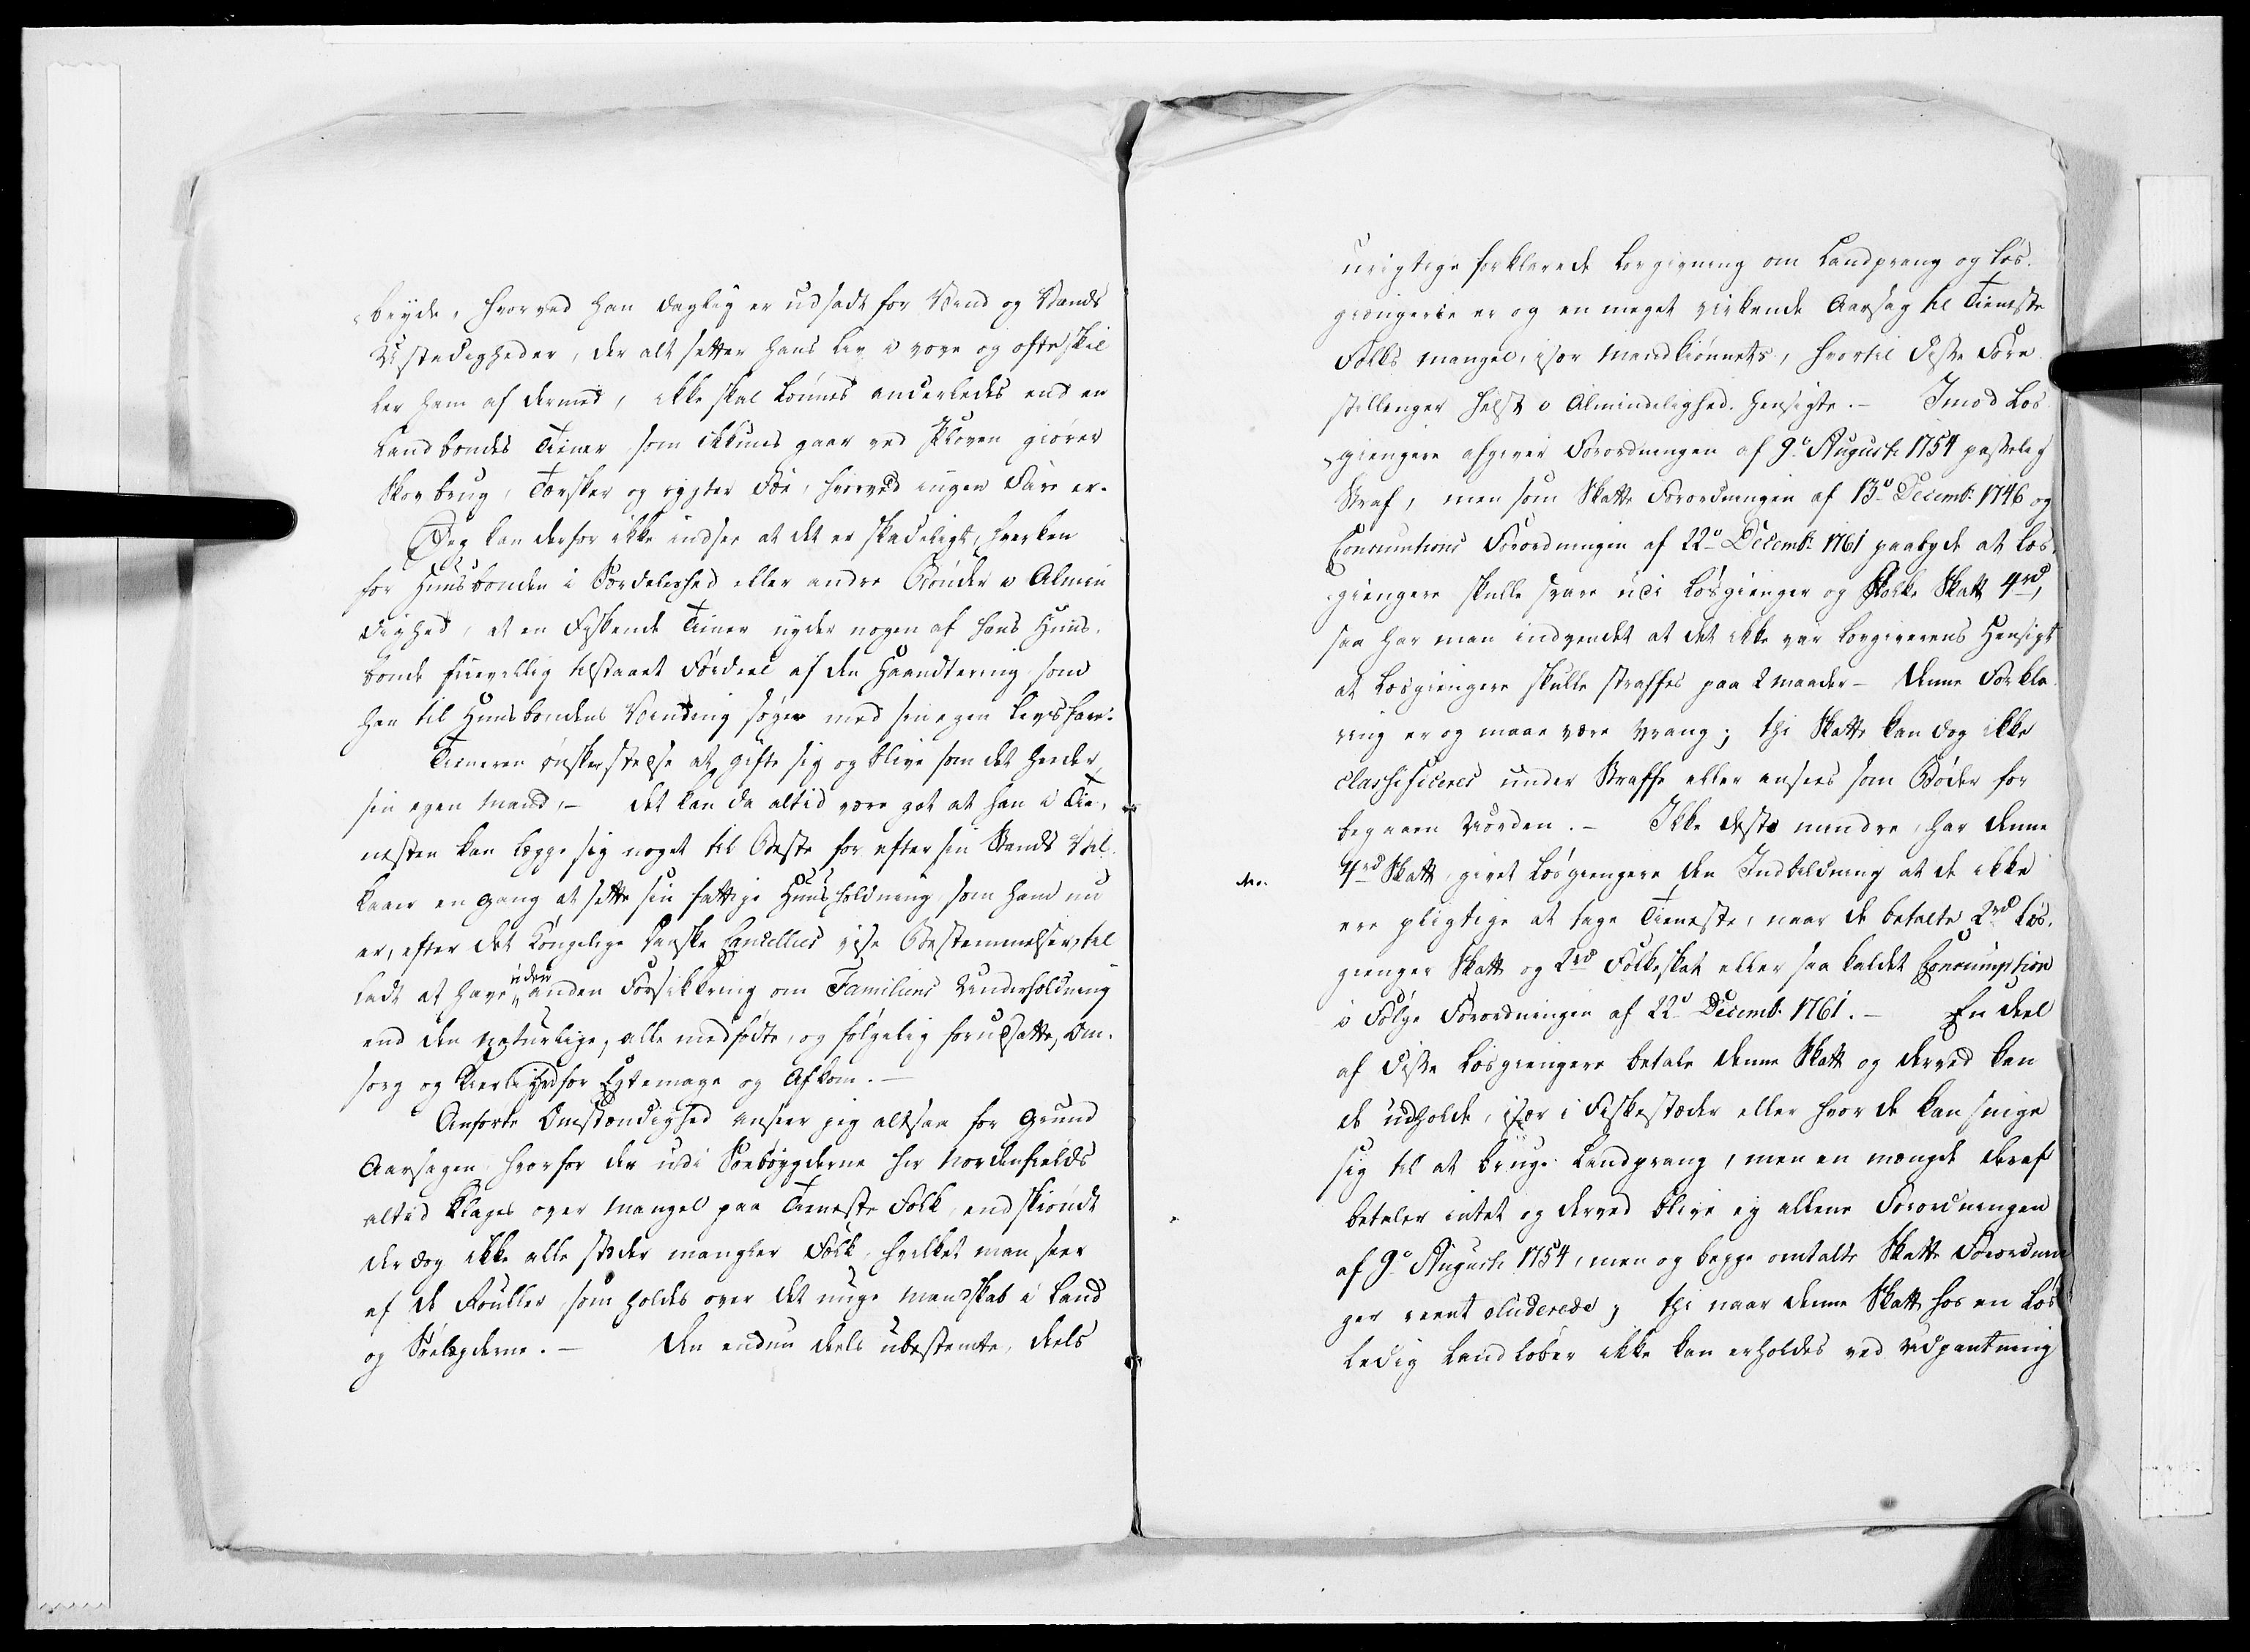 bryde, hvorved han daglig er udsadt for Vind og Vands
Ustadigheder, der alt setter hans Liv i vove og ofte skil
ler ham af dermed, ikke skal lønnes anderledes end en
Landbondes Tiener som ikkuns gaar ved Ploven giører
Skovbrug, Tærsker og rygter Fæe, hvorved ingen Fare er.
Jeg kan derfor ikke indsee at det er skadeligt, hverken
for Huusbonden i Særdeleshed eller andre Bønder i Almin
dighed, at en Fiskende Tiener nyder nogen af hans Huus-
bonde frievillig tilstaaet Fordeel af den Haandtering som
han til Huusbondens Vinding søger med sin egen Livsfare.
Tieneren ønsker at gifte sig og blive som det heder
sin egen Mand, – det kan da altid være got at han i Tie-
nesten kan legge sig noget til Beste for efter sin Stands Vil-
kaar en gang at sette sin fattige Huusholdning som ham nu
er, efter det Kongelige danske Cancellies vise Bestemmelser, til
ladt at have uden anden Forsikkring om Familiens Underholdning
end den naturlige, alle medfødte, og følgelig forudsatte, Om-
sorg og Kierlighed for Egtemage og Afkom. –
Anførte Omstændighed anseer jeg altsaa for Grund
Aarsagen hvorfor der udi Søebøygderne her Nordenfields
altid klages over Mangel paa Tieneste Folk, endskiøndt
der dog ikke alle stæder mangler Folk, hvilket man seer
af de Roller som holdes over det unge Mandskab i Land
og Søelegderne. – Den endnu deels ubestemte, deels
urigtige forklarede Lovgivning om Landprang og Løs-
giængerie er og en meget virkende Aarsag til Tieneste
Folks Mangel, især Mandkiønnets, hvortil diste Fore
stillinger helst i Almindelighed hensigte. – Imod Løs
giengere afgiver Forordningen af 9de Augusti 1754 passelig
Straf, men som Skatte Forordningen af 13de Decemb: 1746 og
Consumtions Forordningen af 22de Decemb: 1761 paabyde at Løs-
giengere skulle svare udi Løsgienger og Folke Skatt 4rd,
saa har man indvendet at det ikke var Lovgiverens Hensigt
at Løsgiengere skulle straffes paa 2 Maader – denne Forkla
ring er og maae være vrang; thi Skatte kan dog ikke
classificeres under Straffe eller ansees som Bøder for
begaaen Uorden. – Ikke desto mindre, har denne
4rd Skatt givet Løsgiengere den Indbildning at de ikke
ere pligtige at tage Tieneste, naar de betalte 2rd Løs-
gienger Skatt og 2rd Folkeskat eller saa kaldet Consumption
i Følge Forordningen af 22de Decemb: 1761. – En deel
af diste Løsgiengere betale denne Skatt og derved kan
de udholde, især i Fiskestæder eller hvor de kan snige
sig til at bruge Landprang, men en mængde deraf
betaler intet og derved blive ey allene Forordningen
af 9de Augusti 1754, men og begge omtalte Skatte Forordnin
ger reent eluderede; thi naar denne Skatt hos en Løs
ledig Landløber ikke kan erholdes ved Udpantning